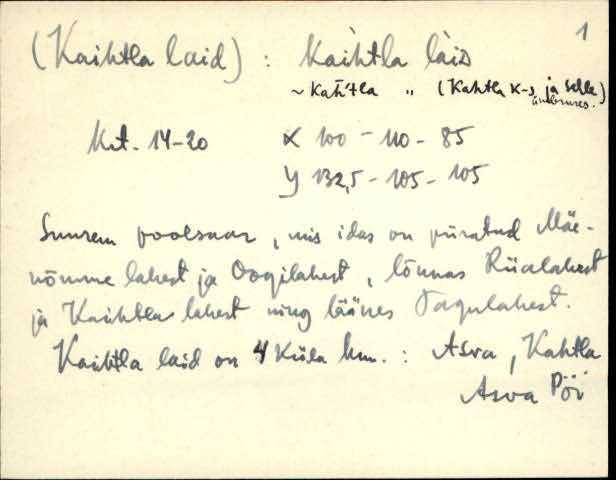 1
(Kaihtla laid) : kaìhtla làid
~ kah̀'tla " (Kahtla k-s ja selle)
ümbruses.
Krt. 14-20 X 100 - 110 - 85
Y 132,5 - 105 - 105
Suurem poolsaar, mis idas on piiratud Mäe-
nõmme lahest ja Oogilahest, lõunas Riialahest
ja Kaihtla lahest ning läänes Tagulahest.
Kaihtla laid on 4 küla hm. : Asva, Kahtla
Asva Pöi